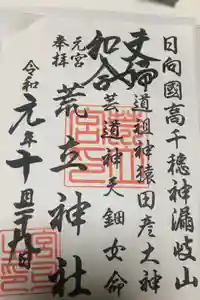 日向國高千穂神漏岐山
夫婦道祖神猿田彦大神
和合芸道神天鈿女命
元宮
奉拝
荒立神社
令和元年十月二十九日